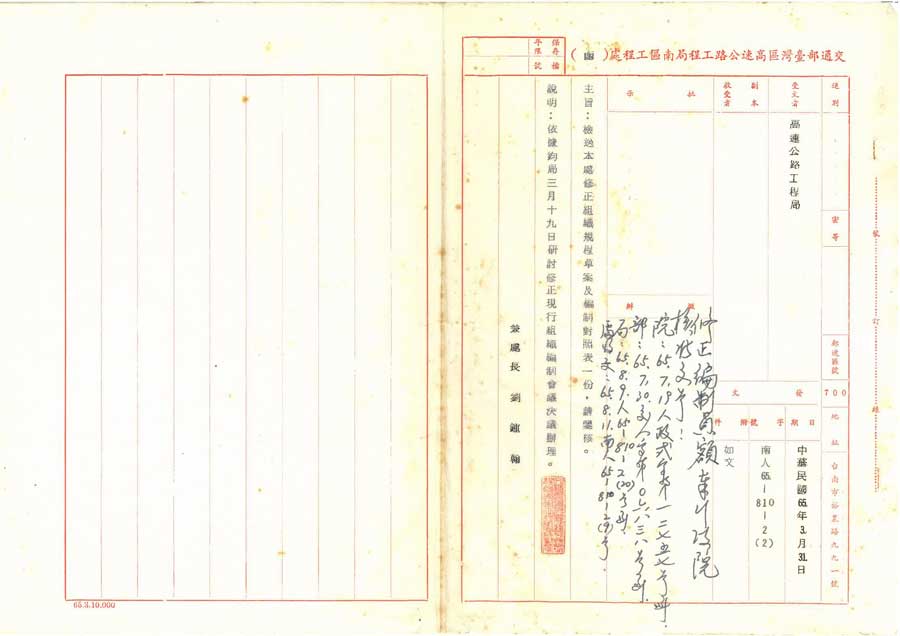 交通部臺灣區高速公路工程局南區工程處(函)
保存年限
檔號
速別
密等
郵遞區號
700
地址
台南市裕農路九九一號
受文者
高速公路工程局
副本收受者
批示
擬辦
發文
日期
中華民國65年3月31日
字號
南人65-810-2(2)
附件
如文
主旨：檢送本處修正組織規程草案及編制對照表一份，請鑒核。
說明：依據鈞局三月十九日研討修正現行組織編制會議決議辦理。
兼處長 劉 鍾 翰
修正編制員額奉行政院
核准文号：
院：65.7.19人政貳字第一二七五七号函.
部：65.7.30.交人字第0六六三八号函.
局：65.8.9.人65-810-2(20)号函.
處轉文：65.8.11.南人65-810-2(9)号
裝
訂
線
65.3.10.000